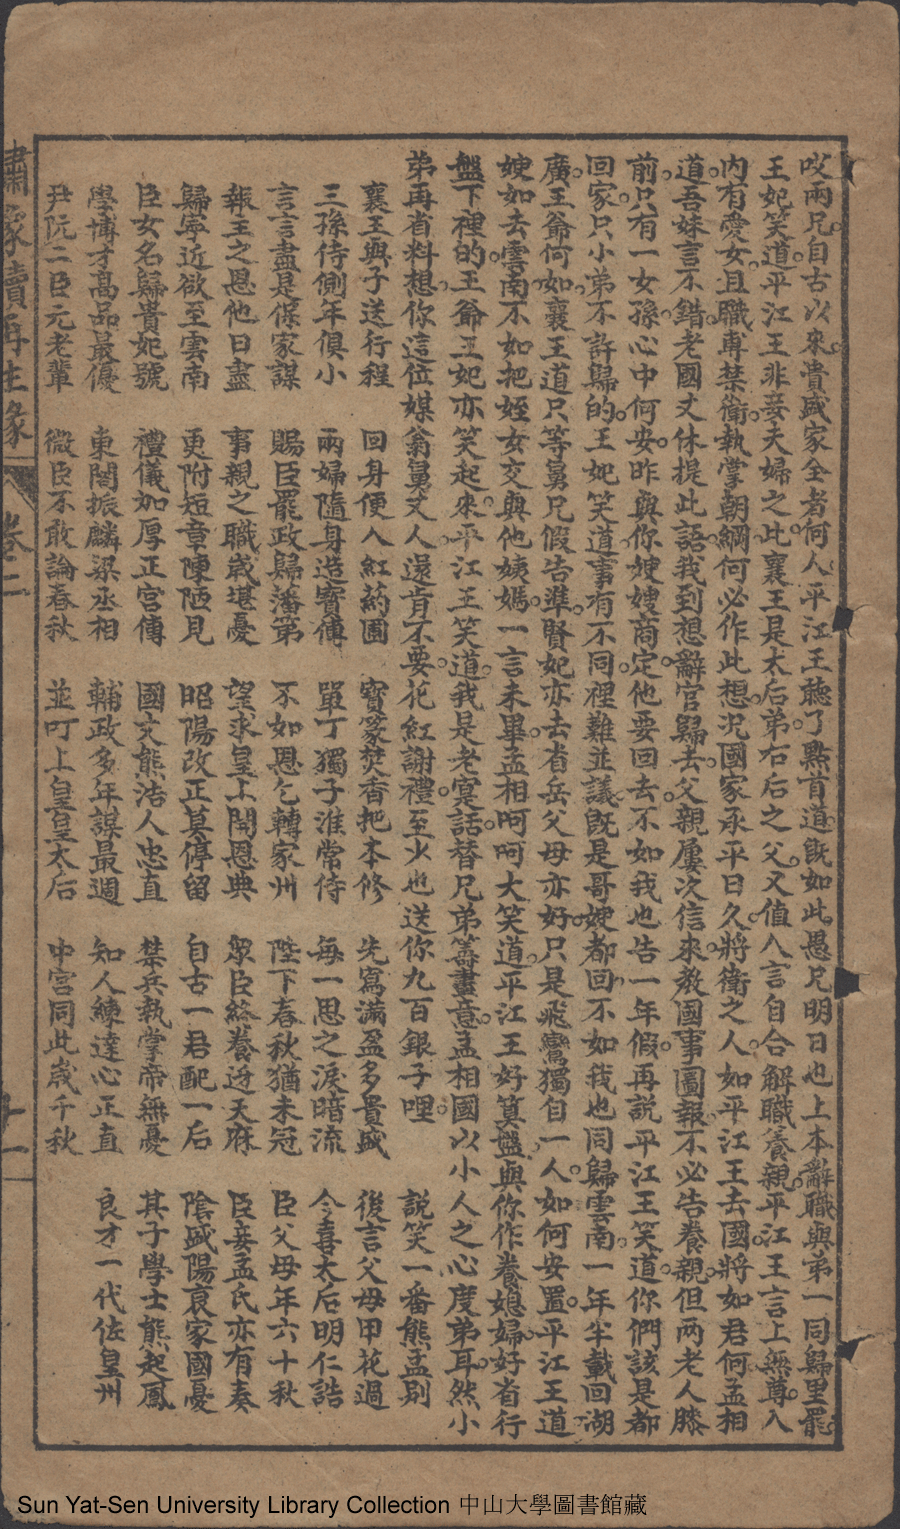 哎兩兄自古以來潰盛家全者何人平江王聽了點首道既如此愚兄明日也上本辭職與弟一同歸里罷
王妃笑道平江王非妾夫婦之此襄王是太后弟右后之父又值八言自合解職養親平江王言上無尊入
內有愛女且職專禁衛執掌朝綱何必作此想况國家承平日久將衛之人如平江王去國將如君何孟相
道吾妹言不錯老國丈休提此語我到想辭官歸去父親屢次信來教國事圖報不必告養親但两老人膝
前只有一女孫心中何安昨與你嫂嫂商定他要回去不如我也告一年假再説平江王笑道你們該是都
回家只小弟不許歸的王妃笑道事有不同裡難並議既是哥嫂都回不如我也同歸雲南一年半載回湖
廣王爺何如襄王道只等舅兄假告準賢妃亦去省岳父母亦好只是飛鸞獨自一人如何安置平江王道
嫂如去雲南不如把姪女交與他姨媽一言未畢孟相呵呵大笑道平江王好算盤與你作養媳婦好省行
盤下裡的王爺王妃亦笑起來平江王笑道我是老寔話替兄弟籌畫意孟相國以小人之心度弟耳然小
弟再省料想你這位媒翁舅丈人還肯不要花紅謝禮至火也送你九百銀子哩　説笑一番熊孟别
襄王與子送行程　回身便入紅葯圃　寶篆焚香把本修　先寫滿盈多貴盛　後言父母甲花過
三孫侍側年俱小　兩婦隨身造寶傳　單丁獨子淮常侍　每一思之淚暗流　今喜太后明仁誥
言言盡是保家謀　賜臣罷政歸潘第　不如恩乞轉家州　陛下春秋猶未冠　臣父母年六十秋
報主之恩他日盡　事親之職歲堪憂　望求皇上開恩典　眾臣終養近天庥　臣妾孟氏亦有奏
歸寧近欲至雲南　更附短章陳陋見　昭陽改正莫停留　自古一君配一后　陰盛陽衰家國憂
臣女名歸貴妃號　禮儀加厚正宮傳　國丈熊浩人忠直　禁兵執掌帝無憂　其子學士熊起鳳
學博才高品最優　東閣振麟梁丞相　輔政多年謀最週　知人練達心正直　良才一代佐皇州
尹阮二臣元老輩　微臣不敢論春秋　並叮上皇皇太后　中宮同此歲千秋
繡像續再生緣　卷二　十一
Sun Yat-Sen University Library Collection 中山大學圖書館藏